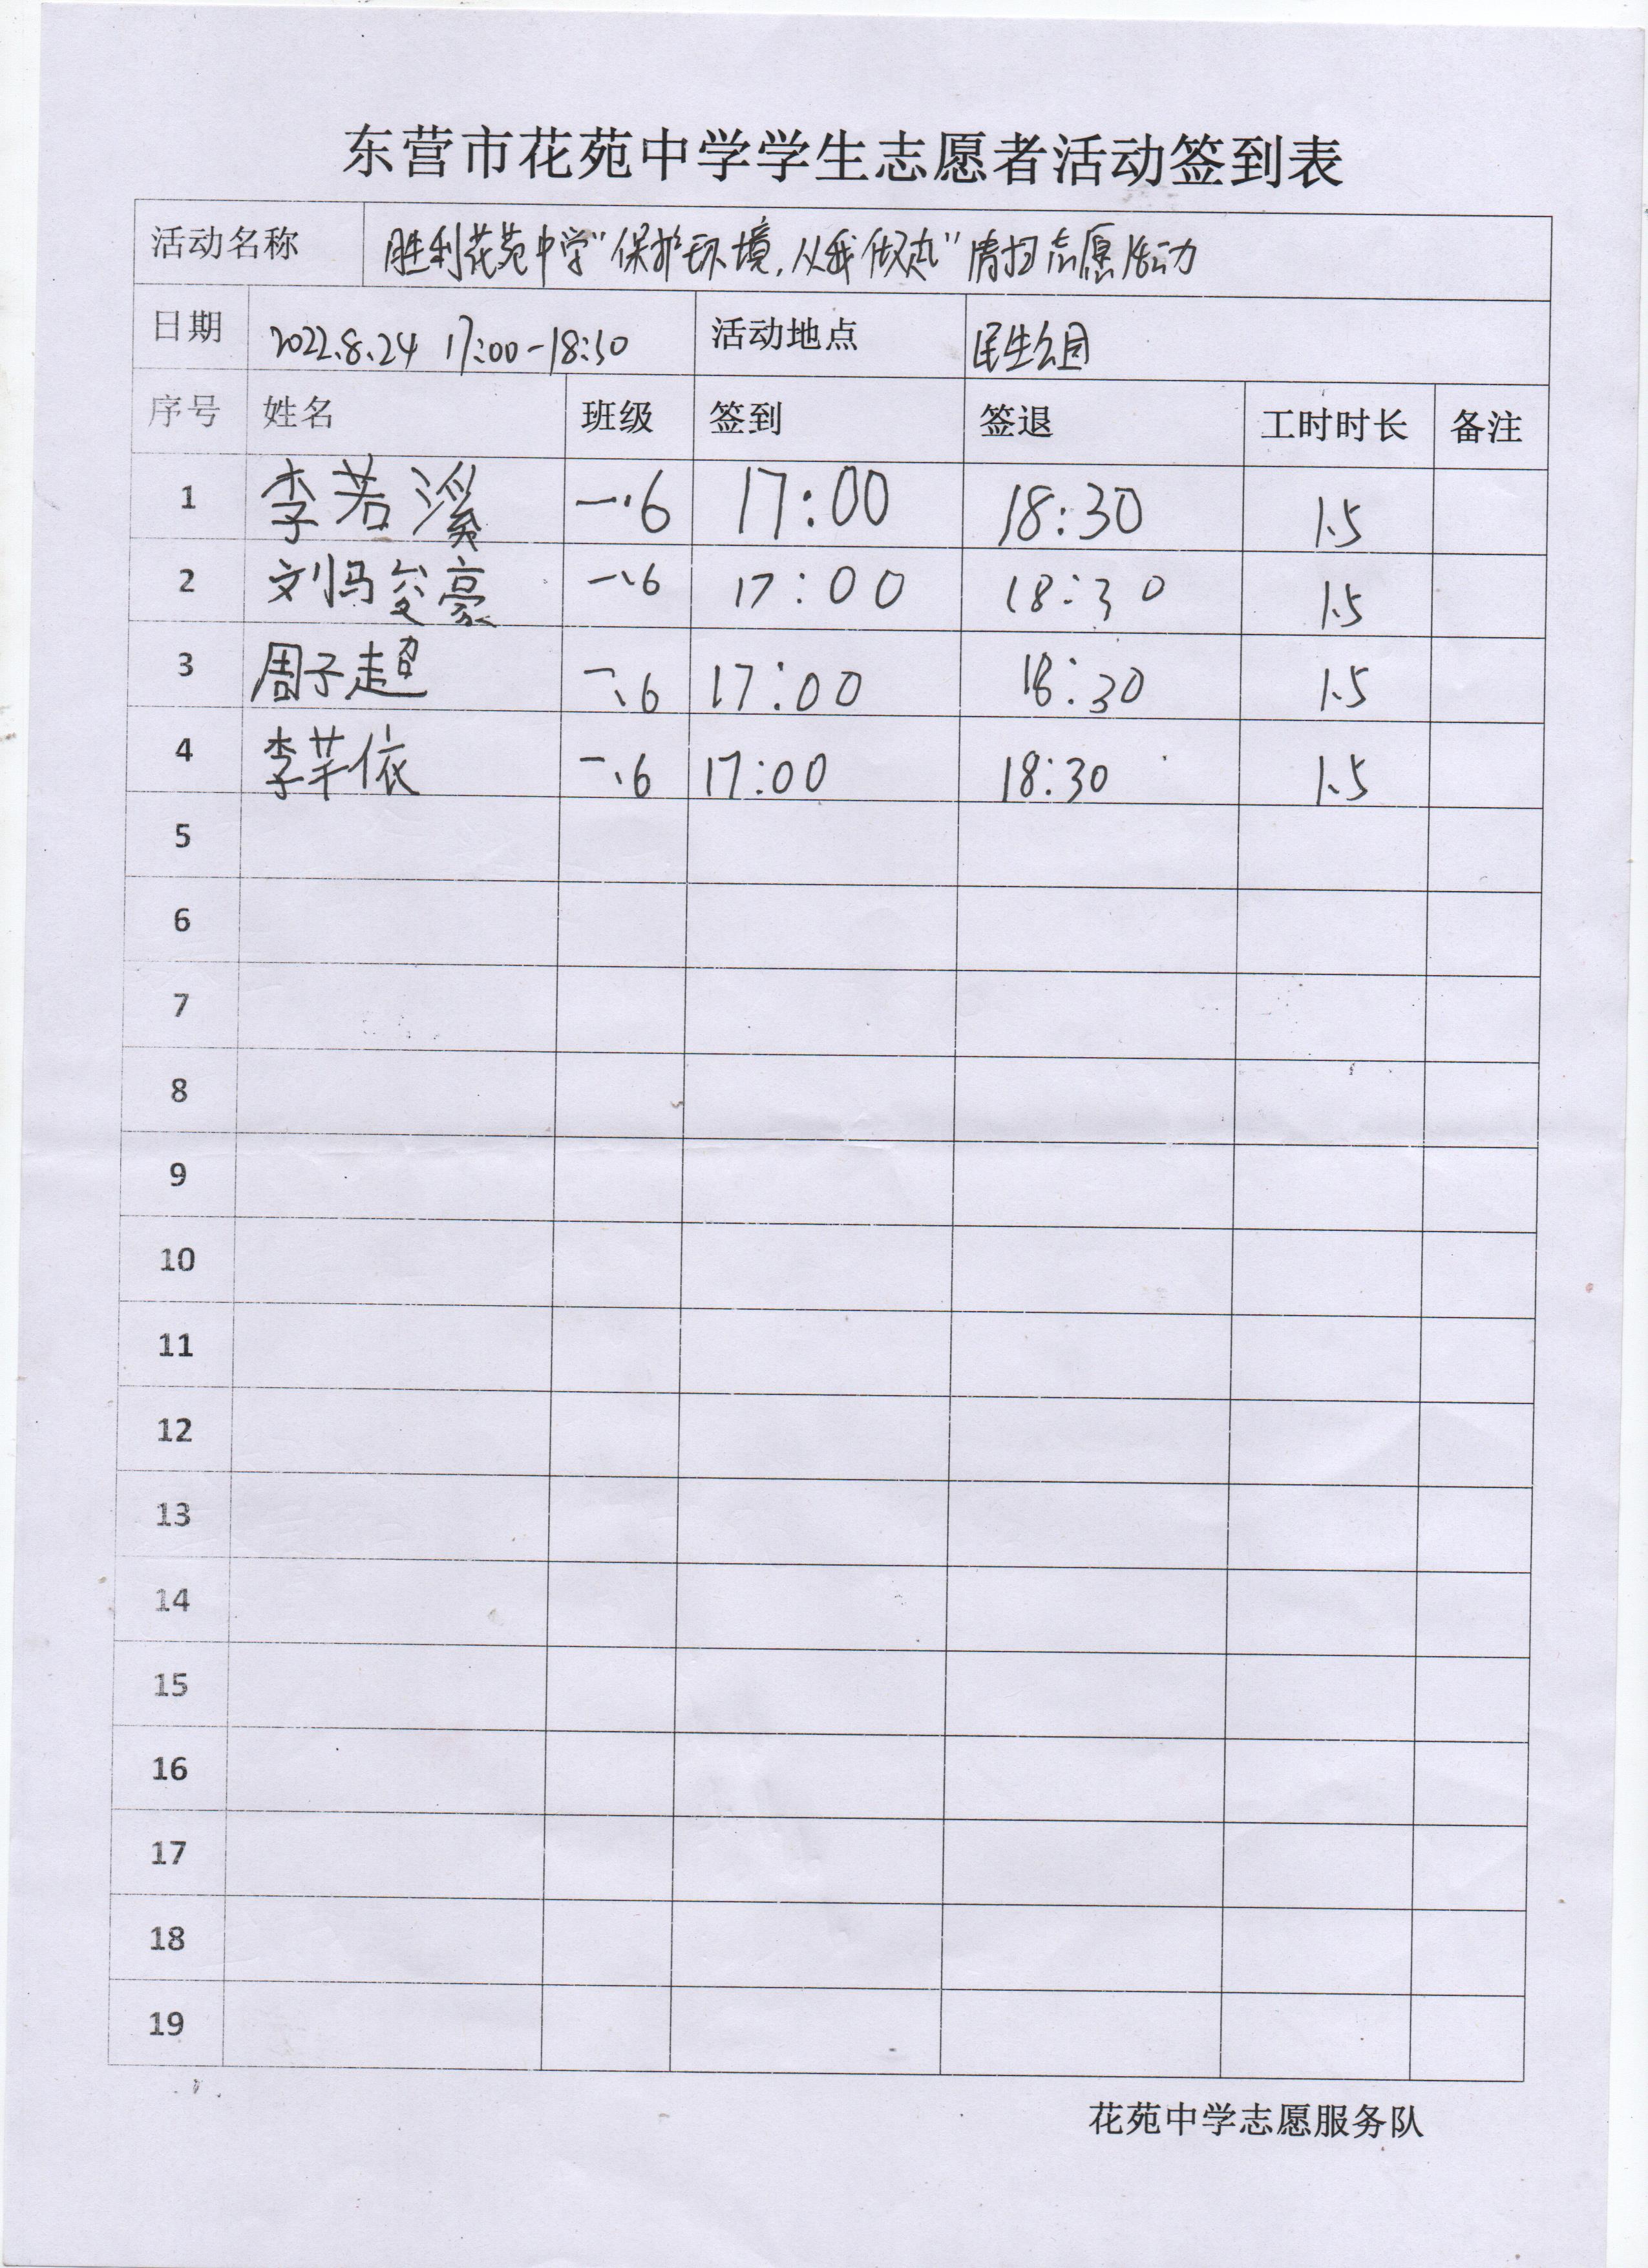 东营市花苑中学学生志愿者活动签到表
活动名称 胜利花苑中学"保护环境,从我做起"清扫志愿活动
日期 2022.8.24 17:00-18:30 活动地点 民生公园
序号 姓名 班级 签到 签退 工时时长 备注
1 李若溪 一.6 17:00 18:30 1.5
2 刘冯俊豪 一.6 17:00 18:30 1.5
3 周子超 一.6 17:00 18:30 1.5
4 李芊依 一.6 17:00 18:30 1.5
5
6
7
8
9
10
11
12
13
14
15
16
17
18
19
花苑中学志愿服务队